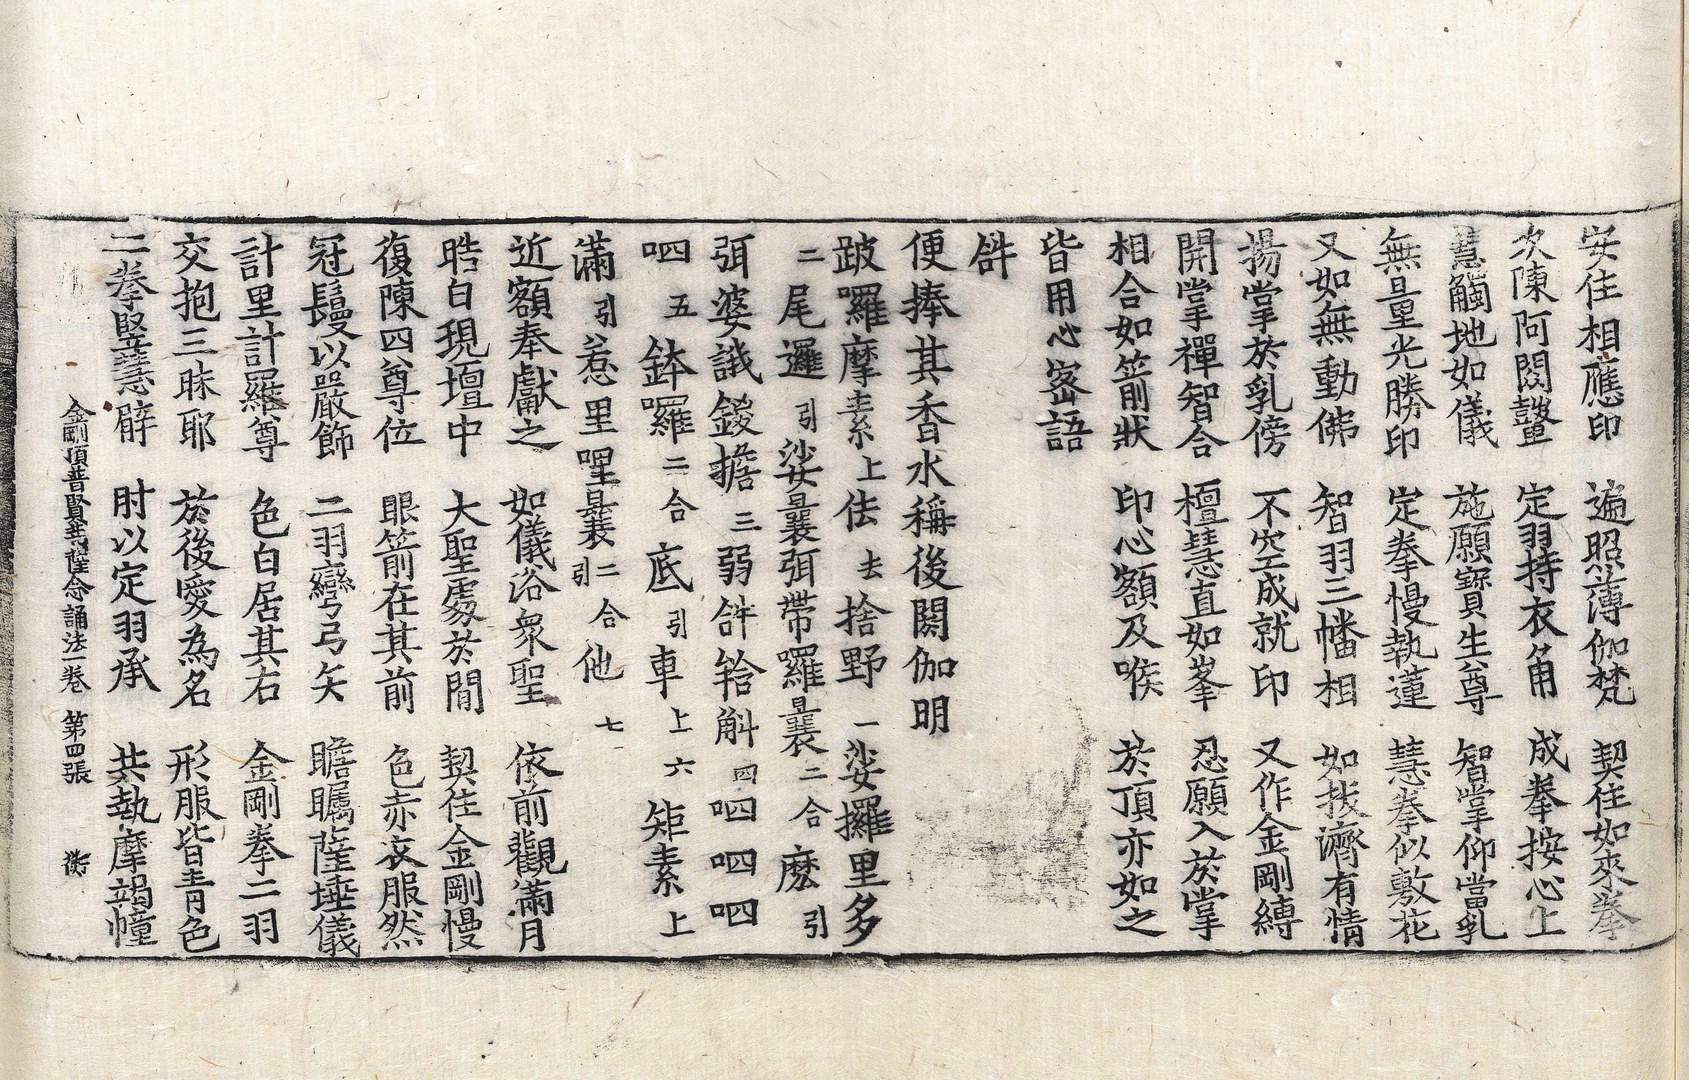 安住相應印 遍照薄伽梵 契住如來拳
次陳阿閦鼙 定羽持衣角 成拳按心上
慧觸地如儀 施願寶生尊 智掌仰當乳
無量光勝印 定拳慢執蓮 慧拳似敷花
又如無動佛 智羽三幡相 如拔濟有情
揚掌於乳傍 不空成就印 又作金剛縛
開掌禪智合 檀慧直如峯 忍願入於掌
相合如箭狀 印心額及喉 於頂亦如之
皆用心密語
𤙖
便捧其香水稱後閼伽明
跛囉摩素上佉去捨野一娑攞里多
二尾邏引娑曩弭帶囉曩二合麽引
弭婆誐鍐擔三弱𤙖𤚥斛四呬呬呬
呬五鉢囉二合底引車上六矩素上
滿引惹里哩曩二合引他七
近額奉獻之 如儀浴衆聖 依前觀滿月
晧白現壇中 大聖處於間 契住金剛慢
復陳四尊位 眼箭在其前 色赤衣服然
冠鬘以嚴飾 二羽彎弓矢 瞻矚薩埵儀
計里計羅尊 色白居其右 金剛拳二羽
交抱三昧耶 於後愛為名 形服皆青色
二拳竪慧臂 肘以定羽承 共執摩竭幢
金剛頂普賢瑜伽念誦法一卷 第四張 衡